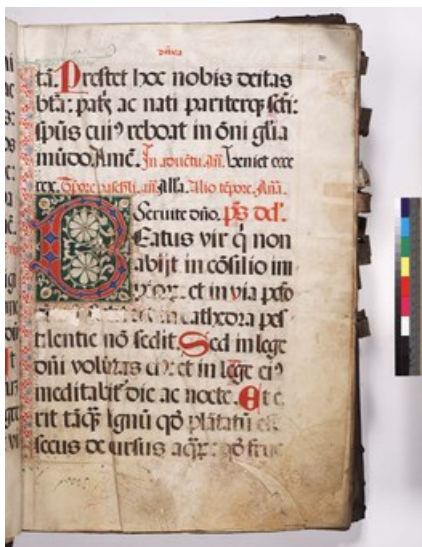 dn̄ica
tā. Prestet hoc nobis deitas
bt̄a: patꝭ ac nati pariterqꝫ sc̄ti:
spūs cuiꝰ reboat in ōni gl̄ia
mūdo. Amē. In aduētu. an̄. Veniet ecce
rex. Tp̄ore paschali. an̄. All̄a. Alio tēpore. Añā.
Seruite dn̄o. p̄s dd̄.
Beatus vir q̄ non
abijt in cōsilio im
et in via pc̄to
in cathedra pes
tilentie nō sedit. Sed in lege
dn̄i volūtas eiꝰ: et in lege eiꝰ
meditabit̄ die ac nocte. Et e
rit tāqꝫ lignū qd̄ plātatū est
secus decursus aqꝝ: qd̄ fruc